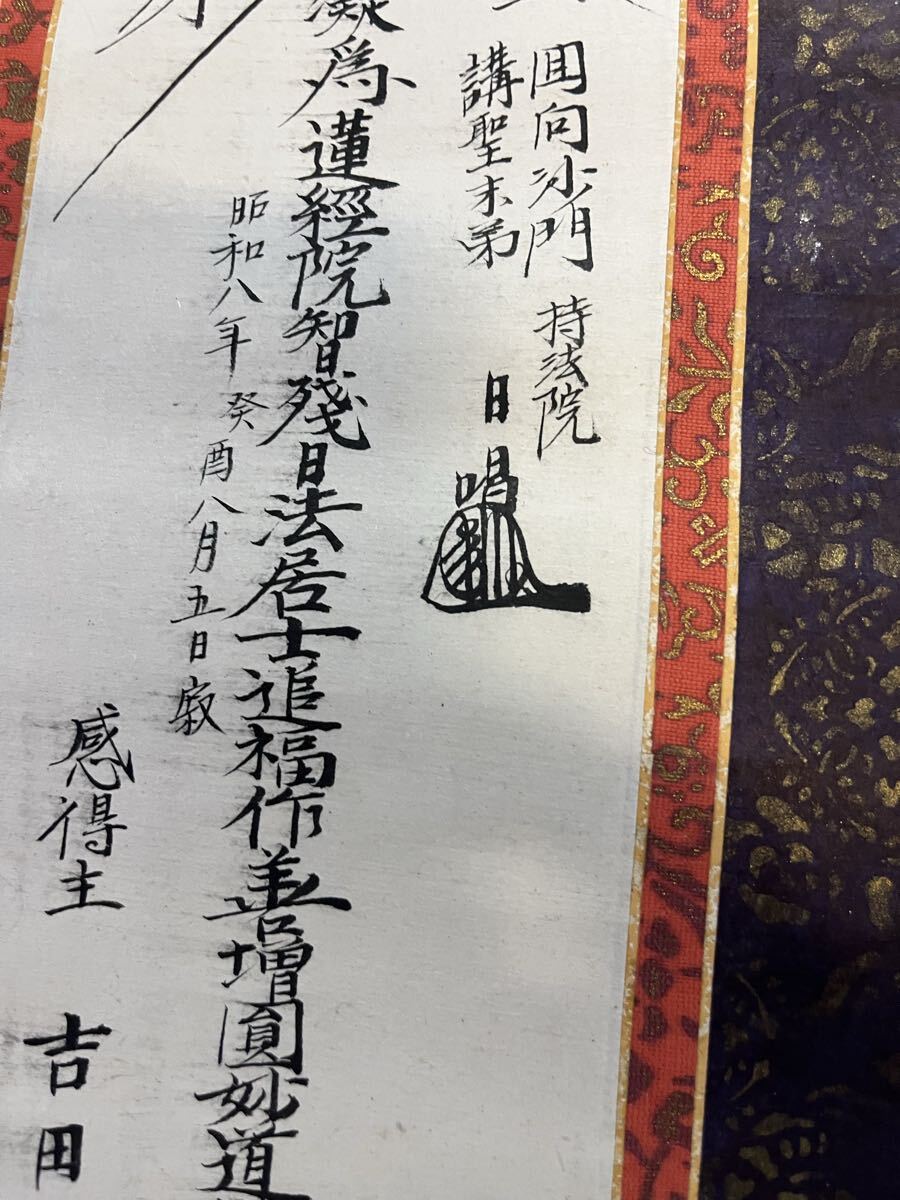 囬向沙門 持法院
講聖末弟 日唱
擬為蓮經院智殘日法居士追福作善増圓妙道
昭和八年癸酉八月五日寂
感得主 吉田